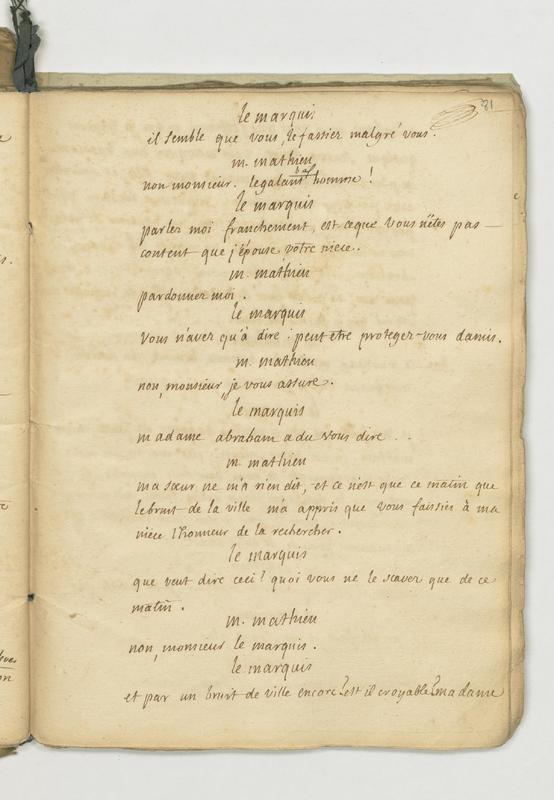 81
le marquis
il semble que vous le fassiez malgré vous.
m. mathieu
non monsieur. le galant homme!
le marquis
parlez moi franchement, est ce que vous n'êtes pas
content que j'épouse votre niece.
m. mathieu
pardonnez moi.
le marquis
vous n'avez qu'à dire : peut etre protegez-vous damis.
m. mathieu
non, monsieur, je vous assure.
le marquis
madame abraham a du vous dire . .
m mathieu
ma sœur ne m'a rien dit, et ce n'est que ce matin que
le bruit de la ville m'a appris que vous faissiez à ma
niéce l'honneur de la rechercher.
le marquis
que veut dire ceci? quoi vous ne le scavez que de ce
matin.
m. mathieu
non, monsieur le marquis.
le marquis
et par un bruit de ville encore? est il croyable? madame